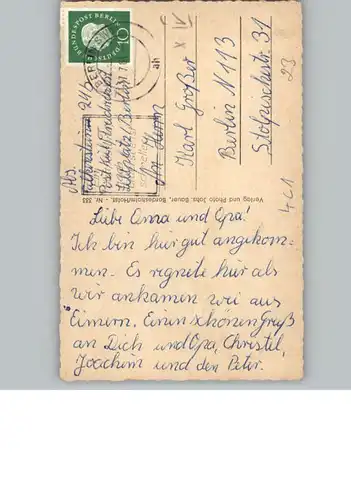 Liebe Oma und Opa!
Ich bin hier gut angekom=
men. Es regnete hier als
wir ankamen wie aus
Eimern. Einen schönen Gruß
an Dich und Opa, Christel,
Joachim und den Peter.
Verlag und Photo Johs. Sauer, Bordesholm/Holst. Nr. 353
Abs.
Herrn
Karl Großer
Berlin N 113
Stolpischestr. 31
23
4C1
X IV
DEUTSCHE BUNDESPOST BERLIN
10
ah